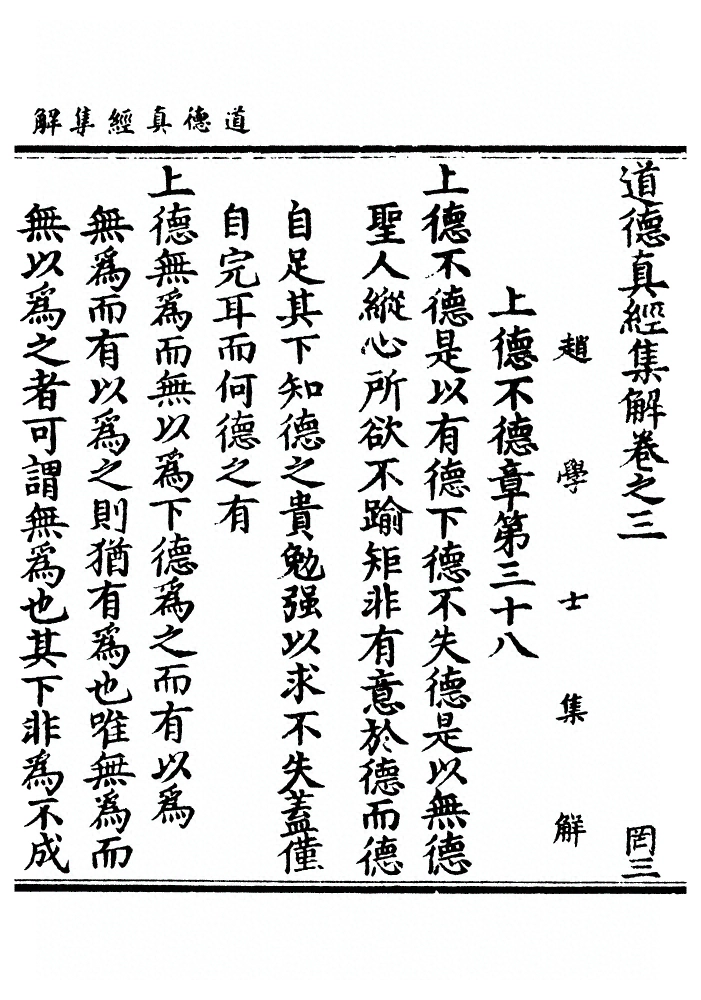 道德真經集解
道德真經集解卷之三 罔三
趙學士集解
上德不德章第三十八
上德不德是以有德下德不失德是以無德
聖人縱心所欲不踰矩非有意於德而德
自足其下知德之貴勉强以求不失蓋僅
自完耳而何德之有
上德無爲而無以爲下德爲之而有以爲
無爲而有以爲之則猶有爲也唯無爲而
無以爲之者可謂無爲也其下非爲不成